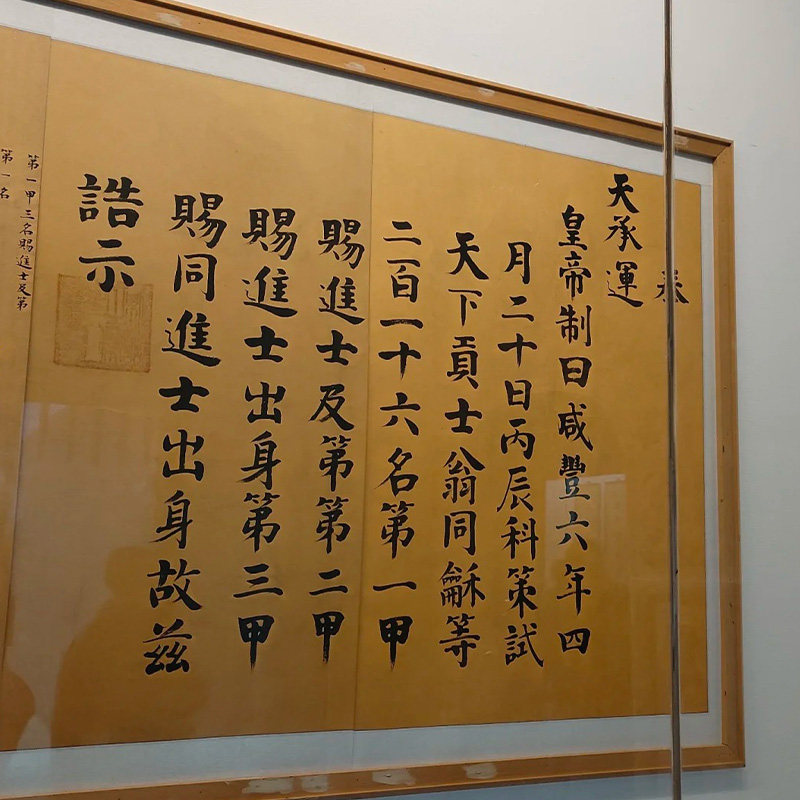 奉
天承運
皇帝制曰咸豐六年四
月二十日丙辰科策試
天下貢士翁同龢等
二百一十六名第一甲
賜進士及第第二甲
賜進士出身第三甲
賜同進士出身故茲
誥示
第一甲三名賜進士及第
第一名